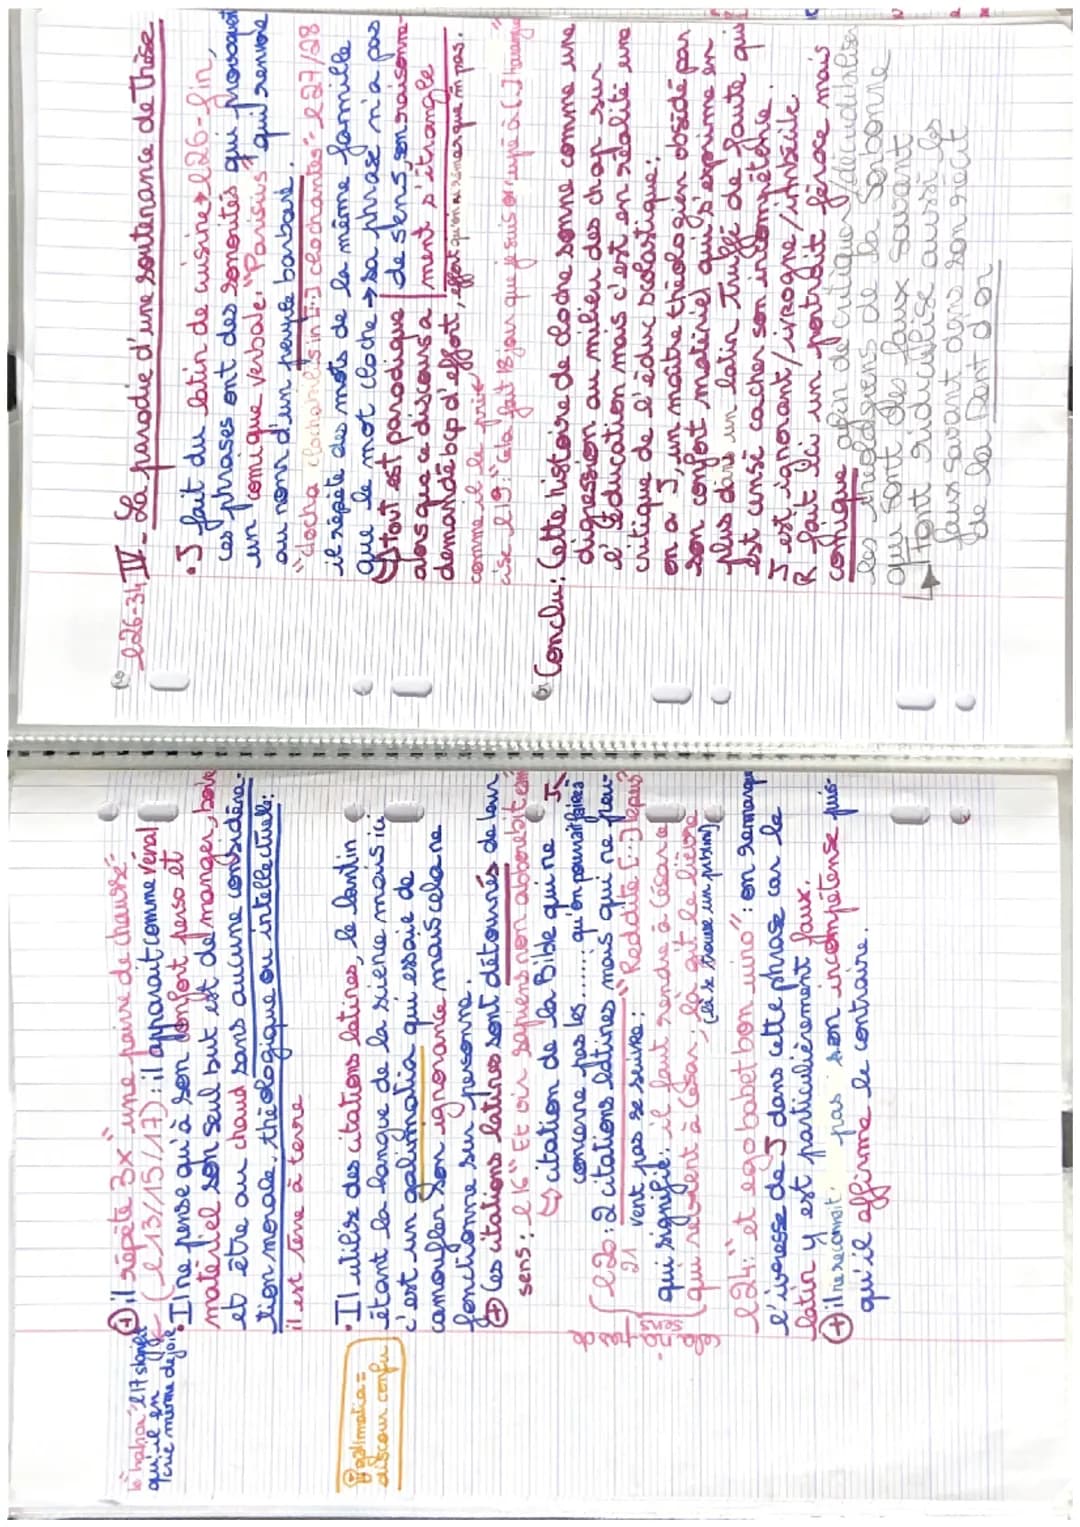 ⊕ il répète 3x "une paire de chausse"
le "hahaa" l17 signifie
qu'il en
crie même de joie
(l13/15/17) : il apparait comme vénal
• Il ne pense qu'à son confort perso et
matériel son seul but est de manger, boire
et être au chaud sans aucune considéra-
tion morale, théologique ou intellectuelle :
il est terre à terre
• Il utilise des citations latines, le lantin
étant la langue de la science mais ici
c'est un galimatia qui essaie de
camoufler son ignorance mais cela ne
fonctionne sur personne.
galimatia =
discour confu
⊕ Ces citations latines sont détournés de leur
sens : l16 "Et vir sapiens non abhorrebit eam"
↳ citation de la Bible qui ne
concerne pas les ...... qu'on pourrait faire à J
l20 : 2 citations latines mais qui ne peu-
21 vent pas se suivre : "Reddite [...] lepus"
qui signifie : il faut rendre à César ce
qui revient à César, là gît le lièvre
(là se trouve un problm)
cela n'a
pas de
sens
l24 : "et ego habet bon vino" : on remarque
l'ivresse de J dans cette phrase car le
latin y est particulièrement faux.
⊕ il ne reconnait pas son incompétense puis-
qu'il affirme le contraire.
l26-34 IV - La parodie d'une soutenance de Thèse
• J fait du latin de cuisine → l26-fin,
ces phrases ont des sonorités qui provoquent
un comique verbale. "Parisius" qui renvoie
au nom d'un peuple barbare.
"clocha clochabilis in [...] clochantes" l27/28
il répète des mots de la même famille
que le mot cloche → sa phrase n'a pas
de sens, son raisonne-
ment s'étrangle
↳ tout est parodique
alors que ce discours a
demandé bcp d'effort, effort qu'on ne remarque m̃ pas.
comme il le prie
cise l19 : "Cela fait 18 jour que je suis occupé à [...] harangue"
Conclu : Cette histoire de cloche sonne comme une
digression au milieu des chap sur
l'éducation mais c'est en réalité une
critique de l'éduc scolastique :
on a J, un maître théologien obsédé par
son confort matériel qui s'exprime en
plus dans un latin truffé de faute qui
est censé cacher son incompétence.
J est ignorant/ivrogne/imbécile.
R fait ici un portrait féroce mais
comique afin de critiquer/décrédibiliser
les théologiens de la Sorbonne
qui sont des faux savant
↳ Font ridiculise aussi les
faux savant dans son récit
de la Dent d'or